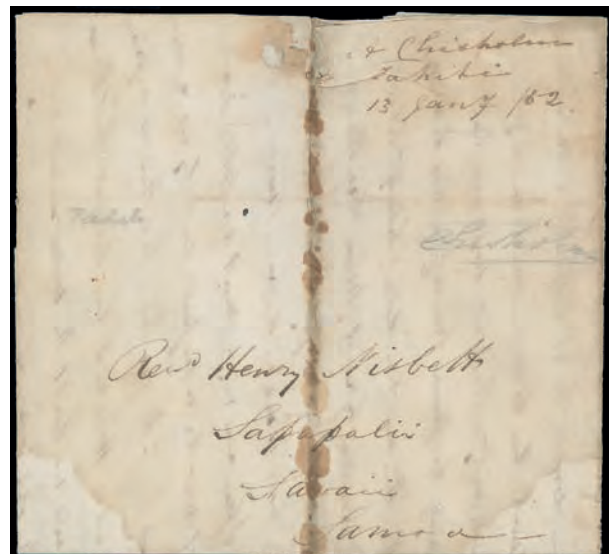 A Chisholm
Tahiti
13 Jany /52.
Tahiti
Chisholm
Revd Henry Nisbett
Sapapalii
Savaii
Samoa